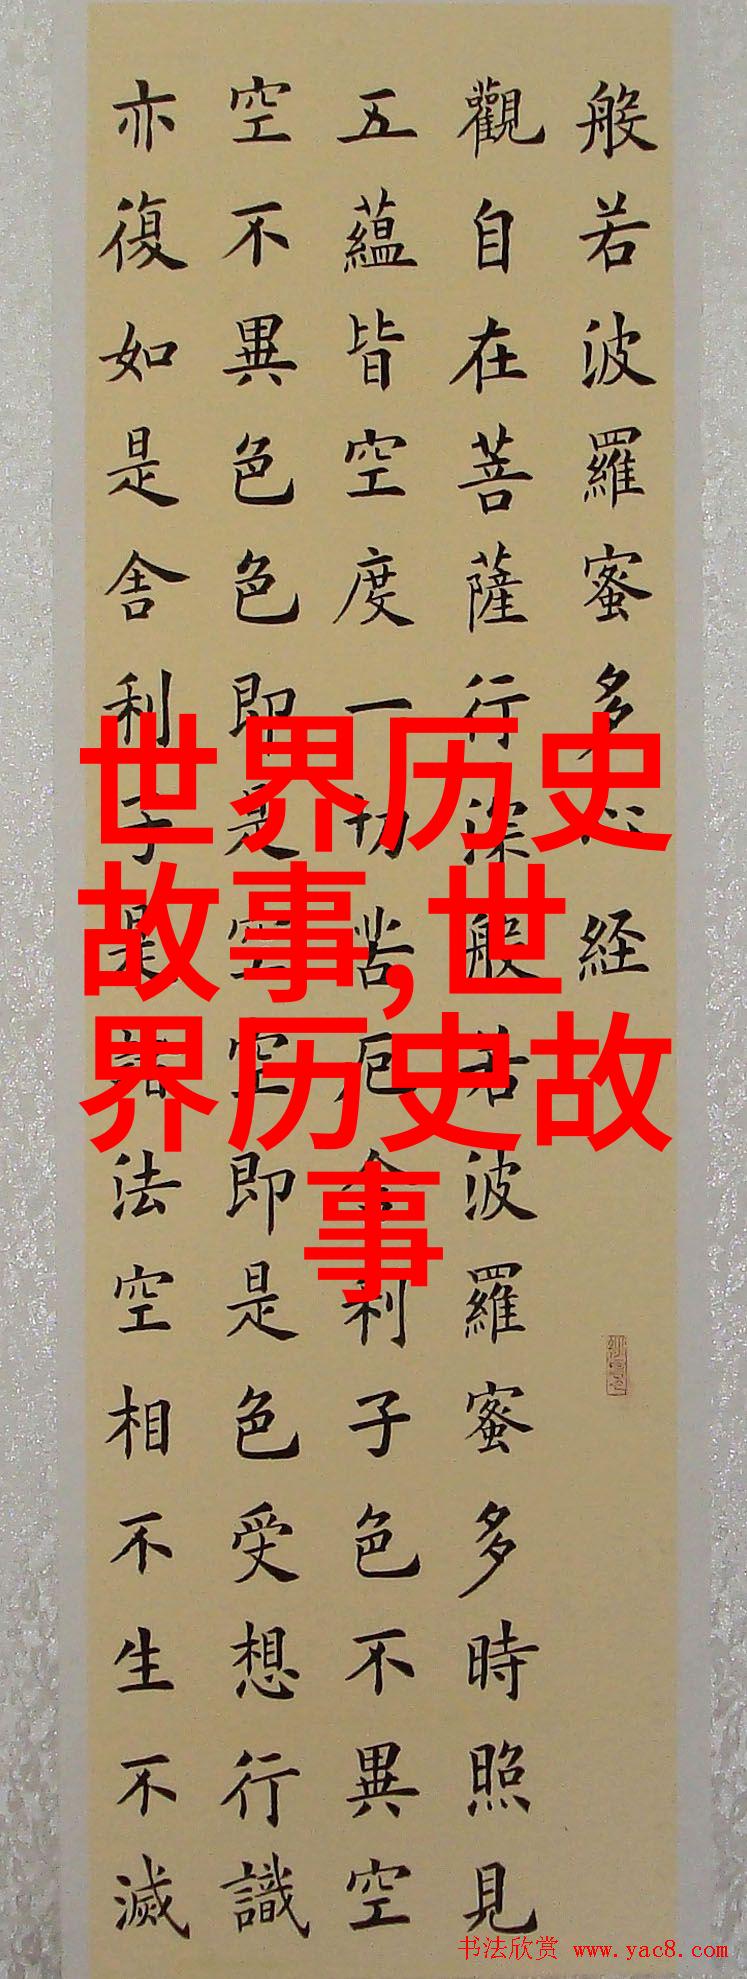 般若波羅蜜多心経
觀自在菩薩行深般若波羅蜜多時照見
五蘊皆空度一切苦厄舍利子色不異空
空不異色色即是空空即是色受想行識
亦復如是舎利子是諸法空相不生不滅
世界历史
故事,世
界历史故
事
书法欣赏 www.yac8.com